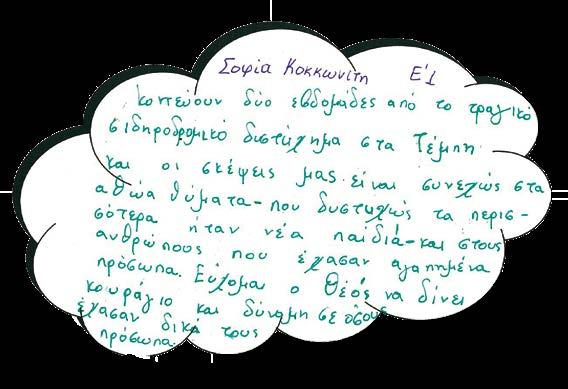 Σοφία Κοκκωνίτη Ε΄1
Κοντεύουν δύο εβδομάδες από το τραγικό
σιδηροδρομικό δυστύχημα στα Τέμπη
και οι σκέψεις μας είναι συνεχώς στα
αθώα θύματα - που δυστυχώς τα περισ-
σότερα ήταν νέα παιδιά - και στους
ανθρώπους που έχασαν αγαπημένα
πρόσωπα. Εύχομαι ο Θεός να δίνει
κουράγιο και δύναμη σε όσους
έχασαν δικά τους
πρόσωπα.